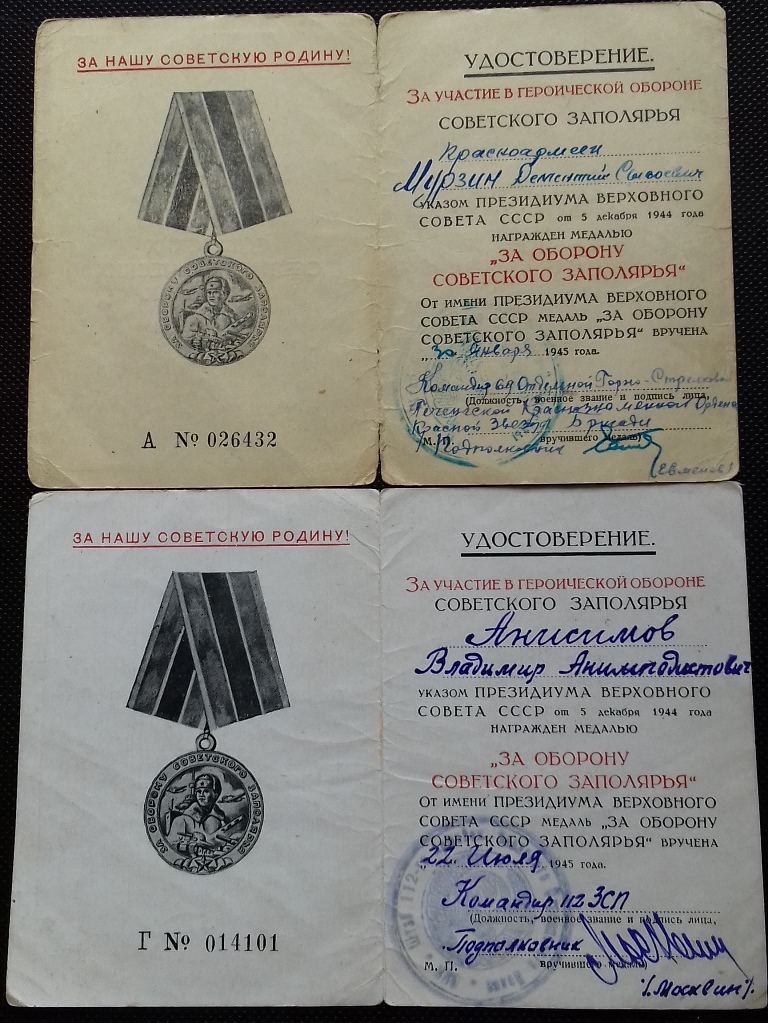 ЗА НАШУ СОВЕТСКУЮ РОДИНУ!
ЗА ОБОРОНУ СОВЕТСКОГО ЗАПОЛЯРЬЯ
А № 026432
УДОСТОВЕРЕНИЕ.
ЗА УЧАСТИЕ В ГЕРОИЧЕСКОЙ ОБОРОНЕ
СОВЕТСКОГО ЗАПОЛЯРЬЯ
Красноармеец
Мурзин Дементий Сысоевич
УКАЗОМ ПРЕЗИДИУМА ВЕРХОВНОГО
СОВЕТА СССР от 5 декабря 1944 года
НАГРАЖДЕН МЕДАЛЬЮ
„ЗА ОБОРОНУ
СОВЕТСКОГО ЗАПОЛЯРЬЯ“
От имени ПРЕЗИДИУМА ВЕРХОВНОГО
СОВЕТА СССР МЕДАЛЬ „ЗА ОБОРОНУ
СОВЕТСКОГО ЗАПОЛЯРЬЯ“ ВРУЧЕНА
„30 Января 1945 года.
Командир 69 Отдельной Горно-Стрелковой
(Должность, военное звание и подпись лица,
Печенгской Краснознаменной Ордена
Красной Звезды Бригады
М. П. вручившего медаль)
Подполковник
(Евменов)
ЗА НАШУ СОВЕТСКУЮ РОДИНУ!
ЗА ОБОРОНУ СОВЕТСКОГО ЗАПОЛЯРЬЯ
Г № 014101
УДОСТОВЕРЕНИЕ.
ЗА УЧАСТИЕ В ГЕРОИЧЕСКОЙ ОБОРОНЕ
СОВЕТСКОГО ЗАПОЛЯРЬЯ
Анисимов
Владимир Анимподистович
УКАЗОМ ПРЕЗИДИУМА ВЕРХОВНОГО
СОВЕТА СССР от 5 декабря 1944 года
НАГРАЖДЕН МЕДАЛЬЮ
„ЗА ОБОРОНУ
СОВЕТСКОГО ЗАПОЛЯРЬЯ“
От имени ПРЕЗИДИУМА ВЕРХОВНОГО
СОВЕТА СССР МЕДАЛЬ „ЗА ОБОРОНУ
СОВЕТСКОГО ЗАПОЛЯРЬЯ“ ВРУЧЕНА
„22. Июля 1945 года.
Штаб 112-
Командир 112 ЗСП
(Должность, военное звание и подпись лица,
Подполковник
М. П. вручившего медаль)
/.Москвин/.